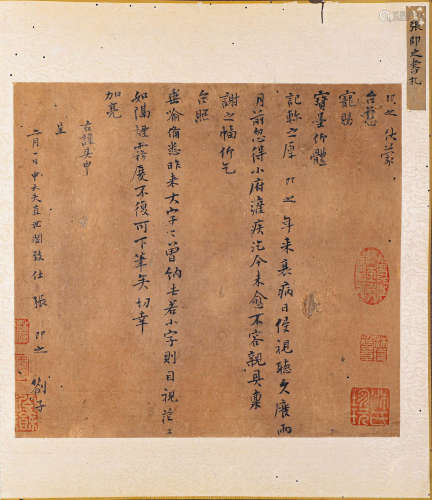 張即之書札
即之 仕蒙
台慈
寵賜
寶墨竹體
記軫之厚 即之 年來衰病日侵視聽久廢兩
月前忽得小府瀧疾迄今未愈不容親具稟
謝之幅竹乞
台照
垂諭備悉昨來大字已曾納去若小字則目視茫二
如隔煙霧廢不復可下筆矣切幸
加亮
右謹具申
呈
二月一日 中大夫直 閣致仕 張 即之 劄子